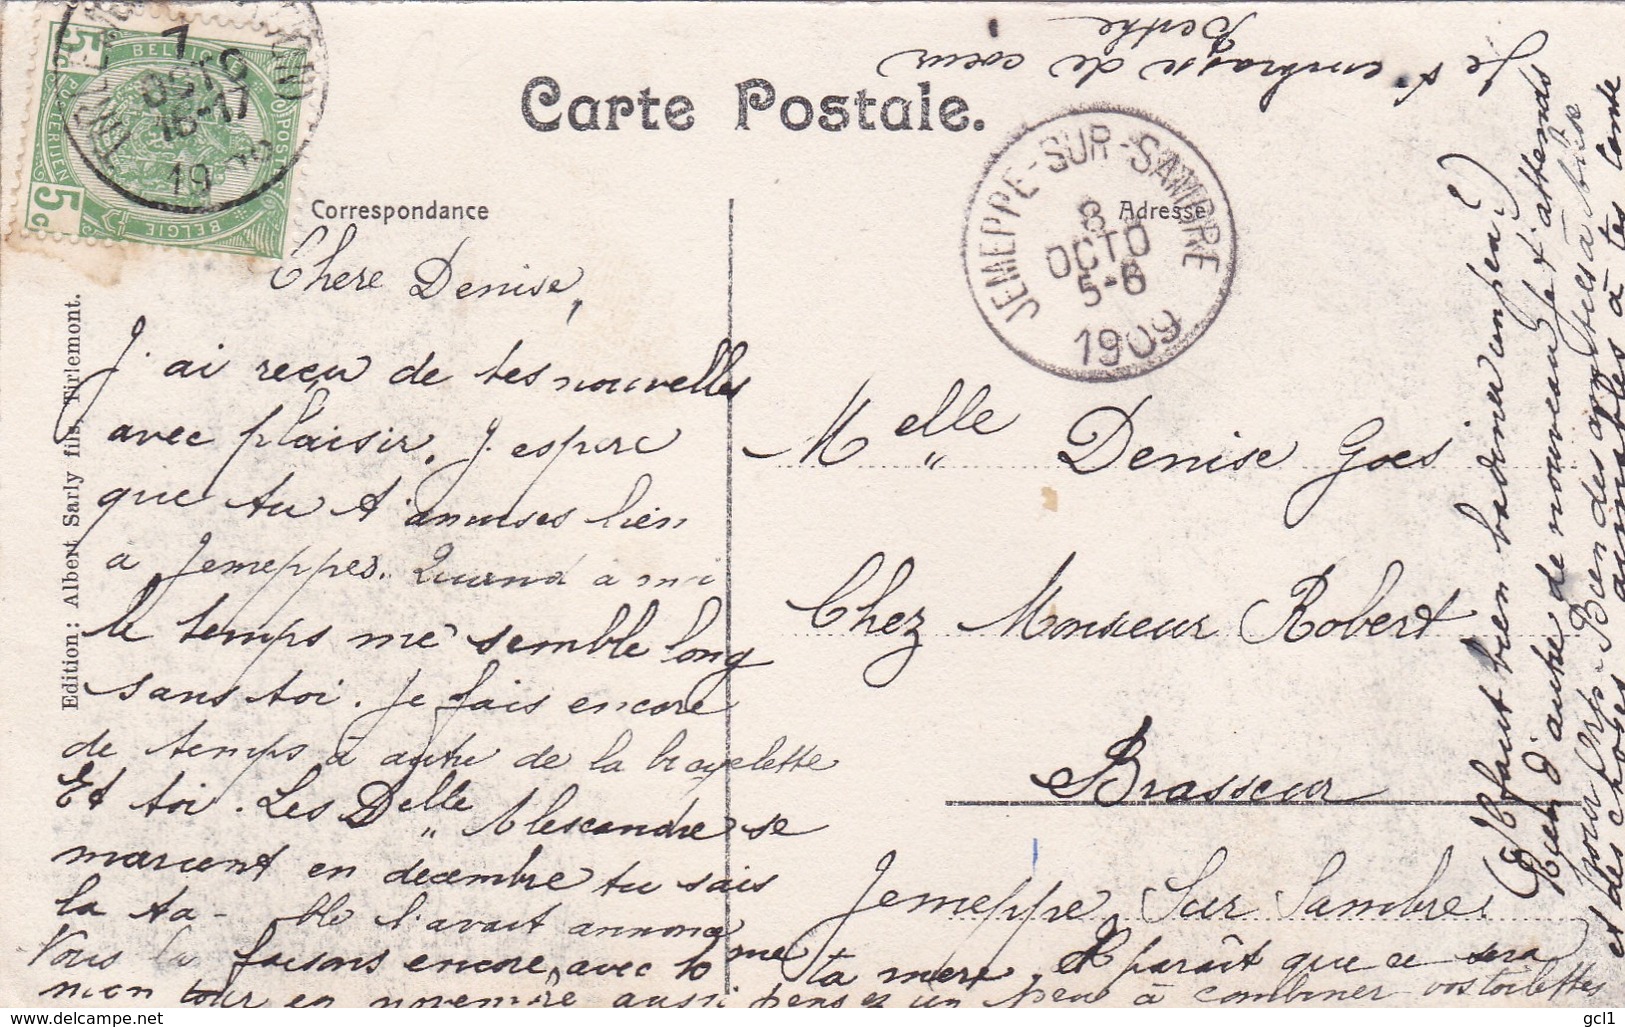 Carte Postale.
Correspondance
Adresse
BELGIQUE
POSTES
POSTERIJEN
BELGIE
5 c
5 c
7
OCT
16-17
19 09
JEMEPPE-SUR-SAMBRE
8
OCTO
5-6
1909
Edition : Albert Sarly fils, Tirlemont.
Chere Denise,,
J'ai recu de tes nouvelles
avec plaisir. J'espere
que tu t'amuses bien
a Jemeppes. Quand a moi
le temps me semble long
sans toi. Je fais encore
de temps à autre de la bicyclette
Et toi. Les Delle Alexandre se
marient en decembre tu sais
la ta-ble l'avait annoncé
Vous la faisons encore avec
ta mere. Il paraît que ce sera
mon tour en novembre aussi pensez un peu à combiner vos toilettes
(Il faut bien badiner un peu?)
Rien d'autre de nouveau Je t'attends
pour
Bien des
et des choses aimables à tes
Je t'embrasse de coeur
Berthe
Melle Denise Goes
Chez Monsieur Robert
Brasseur
Jemeppe Sur Sambre
delcampe.net
gcl1